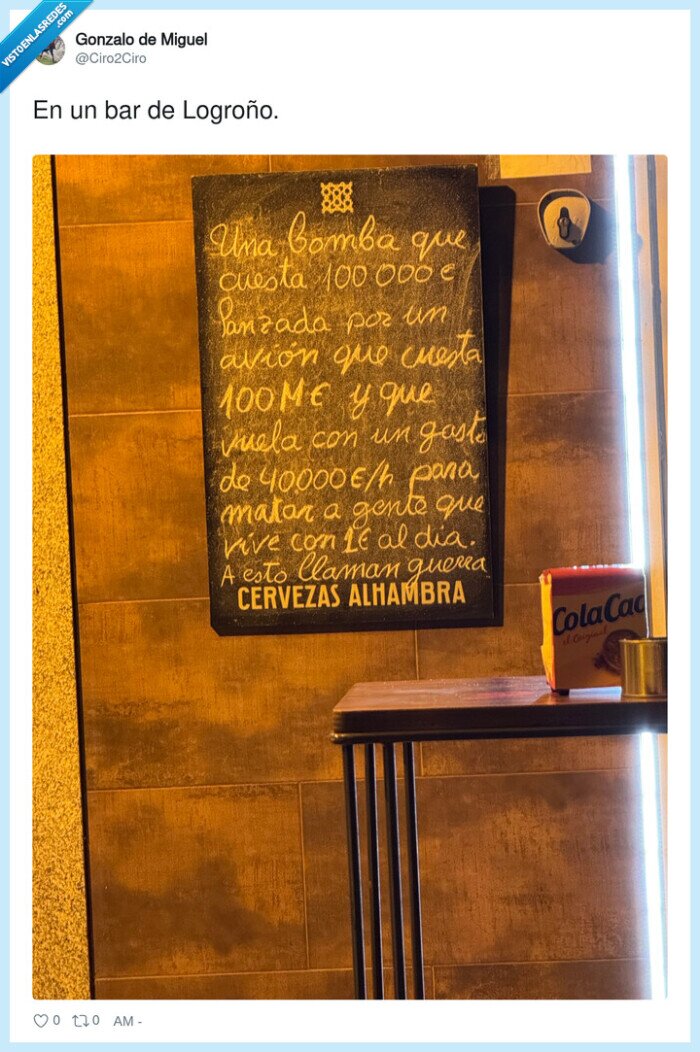 VISTOENLASREDES
.com
Gonzalo de Miguel
@Ciro2Ciro
En un bar de Logroño.
Una bomba que
cuesta 100000€
lanzada por un
avión que cuesta
100M€ y que
vuela con un gasto
de 40.000€/h para
matar a gente que
vive con 1€ al día.
A esto llaman guerra
CERVEZAS ALHAMBRA
ColaCao
el Original
0 0 AM -